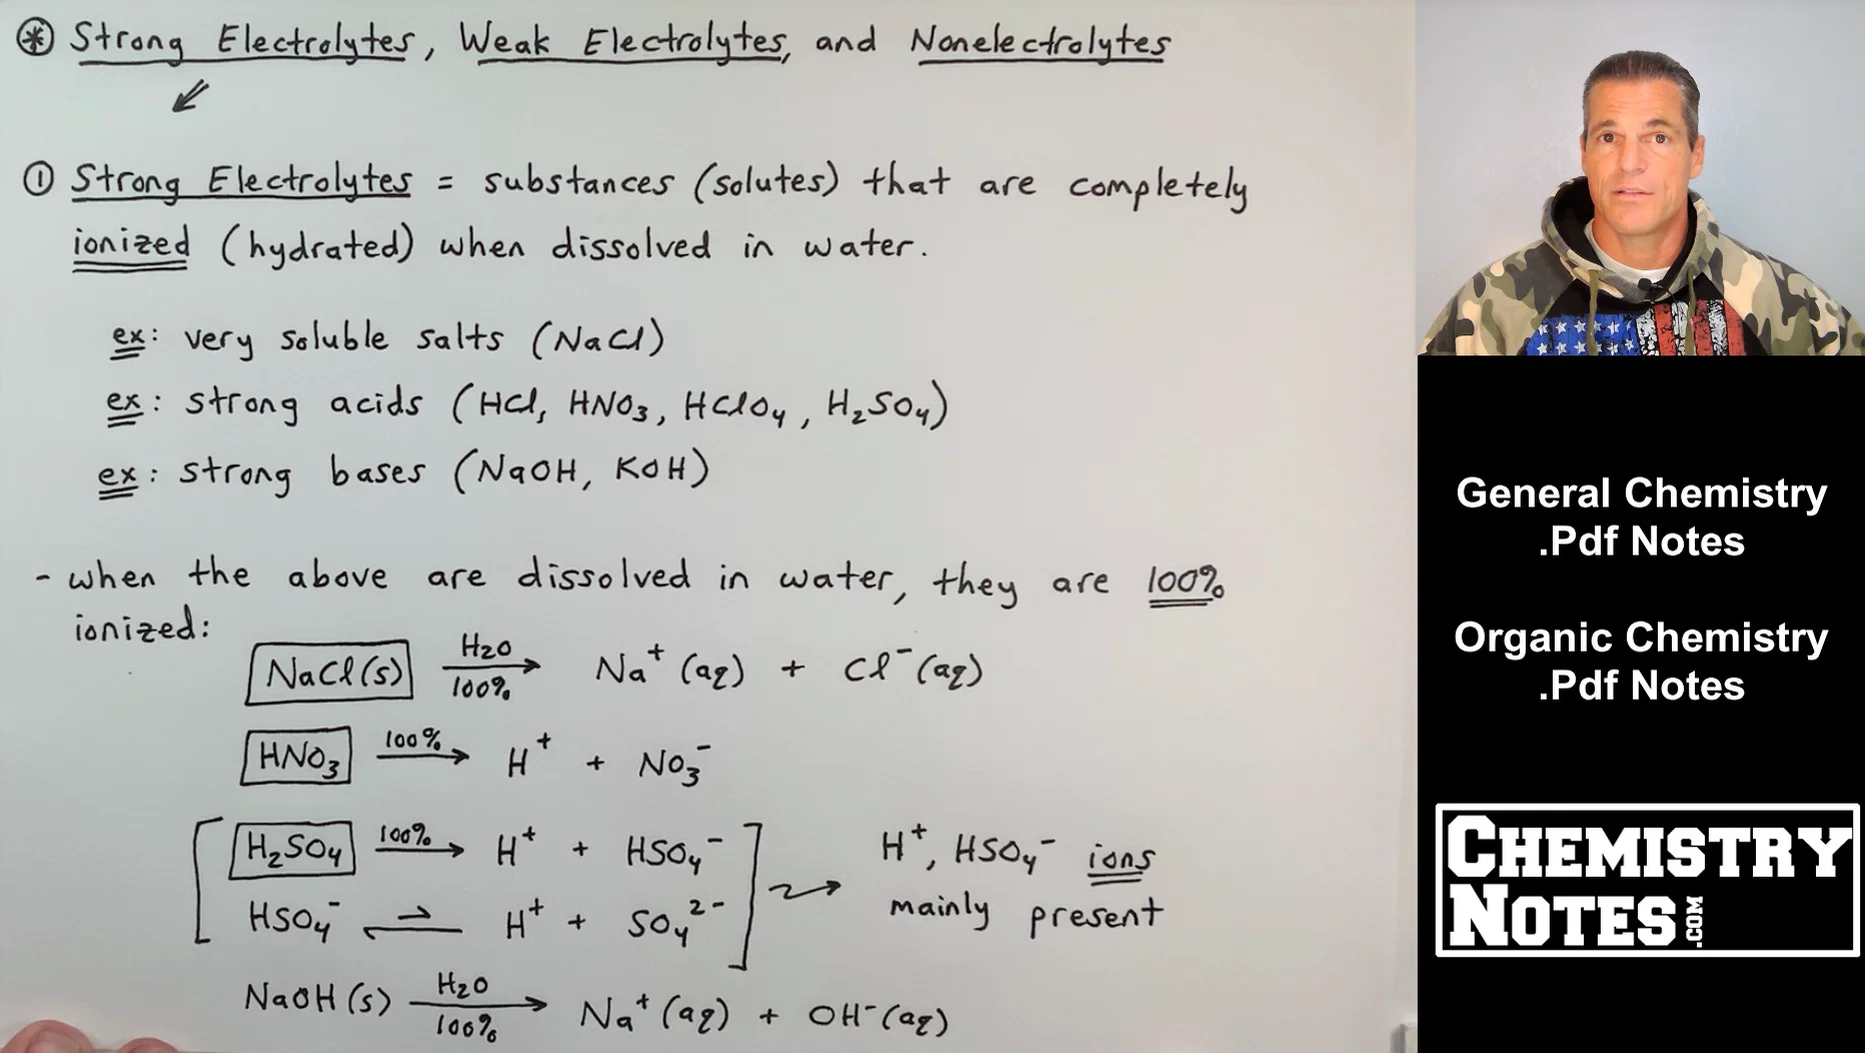 ⊛ Strong Electrolytes, Weak Electrolytes, and Nonelectrolytes
① Strong Electrolytes = substances (solutes) that are completely
ionized (hydrated) when dissolved in water.
ex: very soluble salts (NaCl)
ex: strong acids (HCl, HNO₃, HClO₄, H₂SO₄)
ex: strong bases (NaOH, KOH)
- when the above are dissolved in water, they are 100%
ionized:
NaCl(s) H₂O → 100% Na⁺(aq) + Cl⁻(aq)
HNO₃ 100% → H⁺ + NO₃⁻
H₂SO₄ 100% → H⁺ + HSO₄⁻
HSO₄⁻ ⇌ H⁺ + SO₄²⁻
H⁺, HSO₄⁻ ions
mainly present
NaOH(s) H₂O → 100% Na⁺(aq) + OH⁻(aq)
General Chemistry
.Pdf Notes
Organic Chemistry
.Pdf Notes
CHEMISTRY
NOTES.COM